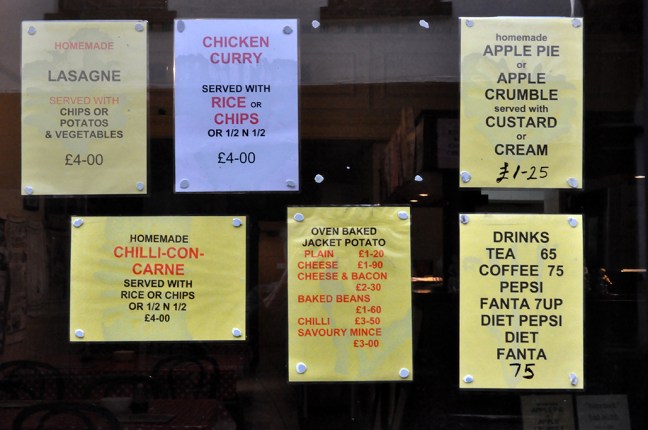 HOMEMADE
LASAGNE
SERVED WITH
CHIPS OR
POTATOS
& VEGETABLES
£4-00
CHICKEN
CURRY
SERVED WITH
RICE OR
CHIPS
OR 1/2 N 1/2
£4-00
homemade
APPLE PIE
or
APPLE
CRUMBLE
served with
CUSTARD
or
CREAM
£1-25
HOMEMADE
CHILLI-CON-
CARNE
SERVED WITH
RICE OR CHIPS
OR 1/2 N 1/2
£4-00
OVEN BAKED
JACKET POTATO
PLAIN £1-20
CHEESE £1-90
CHEESE & BACON
£2-30
BAKED BEANS
£1-60
CHILLI £3-50
SAVOURY MINCE
£3-00
DRINKS
TEA 65
COFFEE 75
PEPSI
FANTA 7UP
DIET PEPSI
DIET
FANTA
75